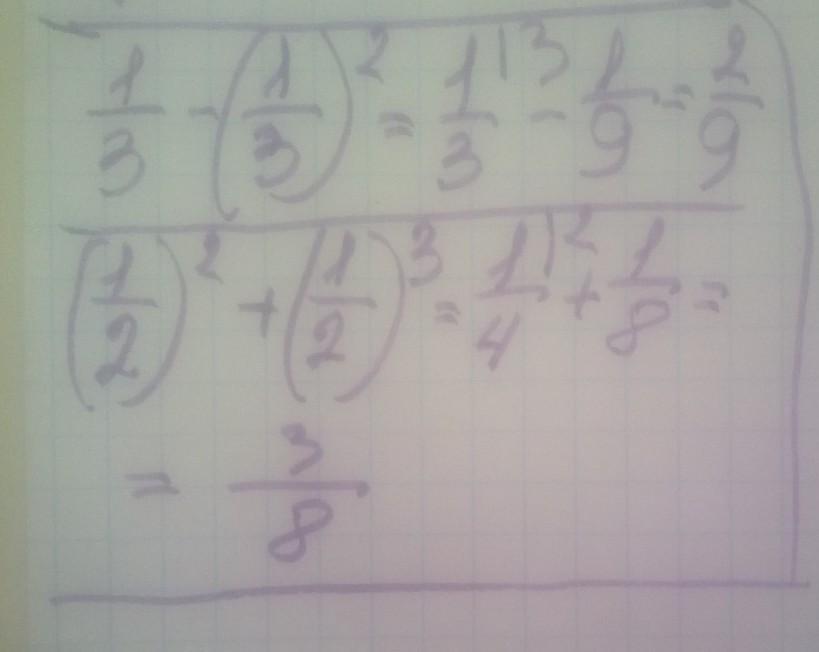 1/3 - (1/3)² = 1/3 |3 - 1/9 = 2/9
(1/2)² + (1/2)³ = 1/4 |2 + 1/8 =
= 3/8